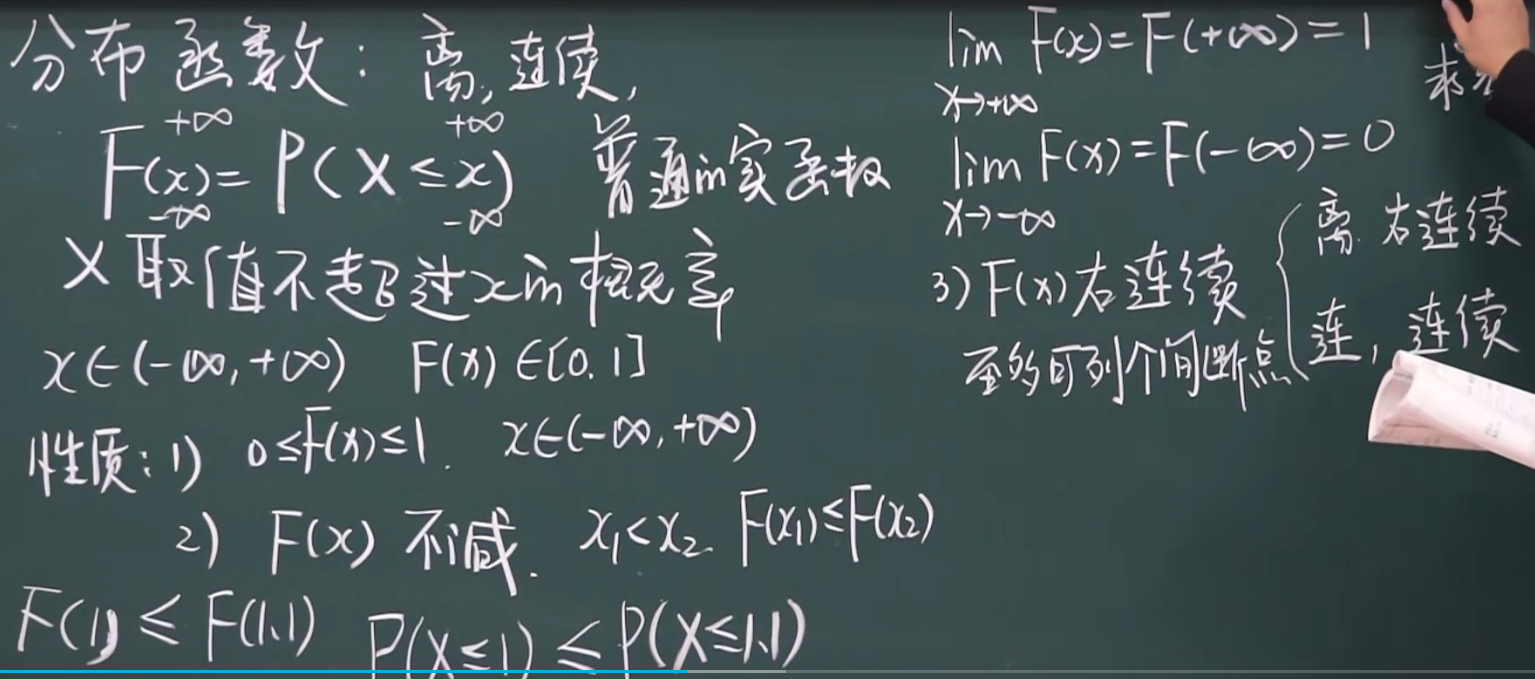 分布函数：离，连续，
+∞ +∞
F(x)=P(X≤x) 普通的实函数
-∞ -∞
X取值不超过x的概率
x∈(-∞,+∞) F(x)∈[0,1]
性质：1) 0≤F(x)≤1. x∈(-∞,+∞)
2) F(x)不减. x₁<x₂ F(x₁)≤F(x₂)
F(1)≤F(1.1) P(X≤1)≤P(X≤1.1)
lim F(x)=F(+∞)=1
x→+∞
lim F(x)=F(-∞)=0
x→-∞
3) F(x)右连续
至多可列个间断点
离. 右连续
连, 连续
求